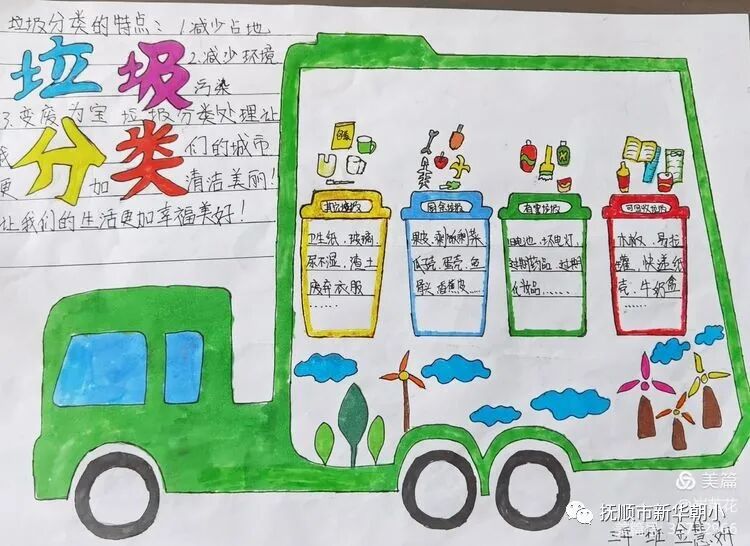 垃圾分类的特点：1.减少占地
2.减少环境
污染
3.变废为宝 垃圾分类处理让
我们的城市
更加清洁美丽！
让我们的生活更加幸福美好！
垃圾
分类
其它垃圾
卫生纸、玻璃
尿不湿、渣土
废弃衣服
……
厨余垃圾
果皮、剩饭剩菜
瓜壳、蛋壳、鱼
骨头、香蕉皮……
有害垃圾
旧电池、坏电灯、
过期药品、过期
化妆品……
可回收垃圾
木板、易拉
罐、快递纸
壳、牛奶盒
……
美篇
抚顺市新华朝小
三年一班